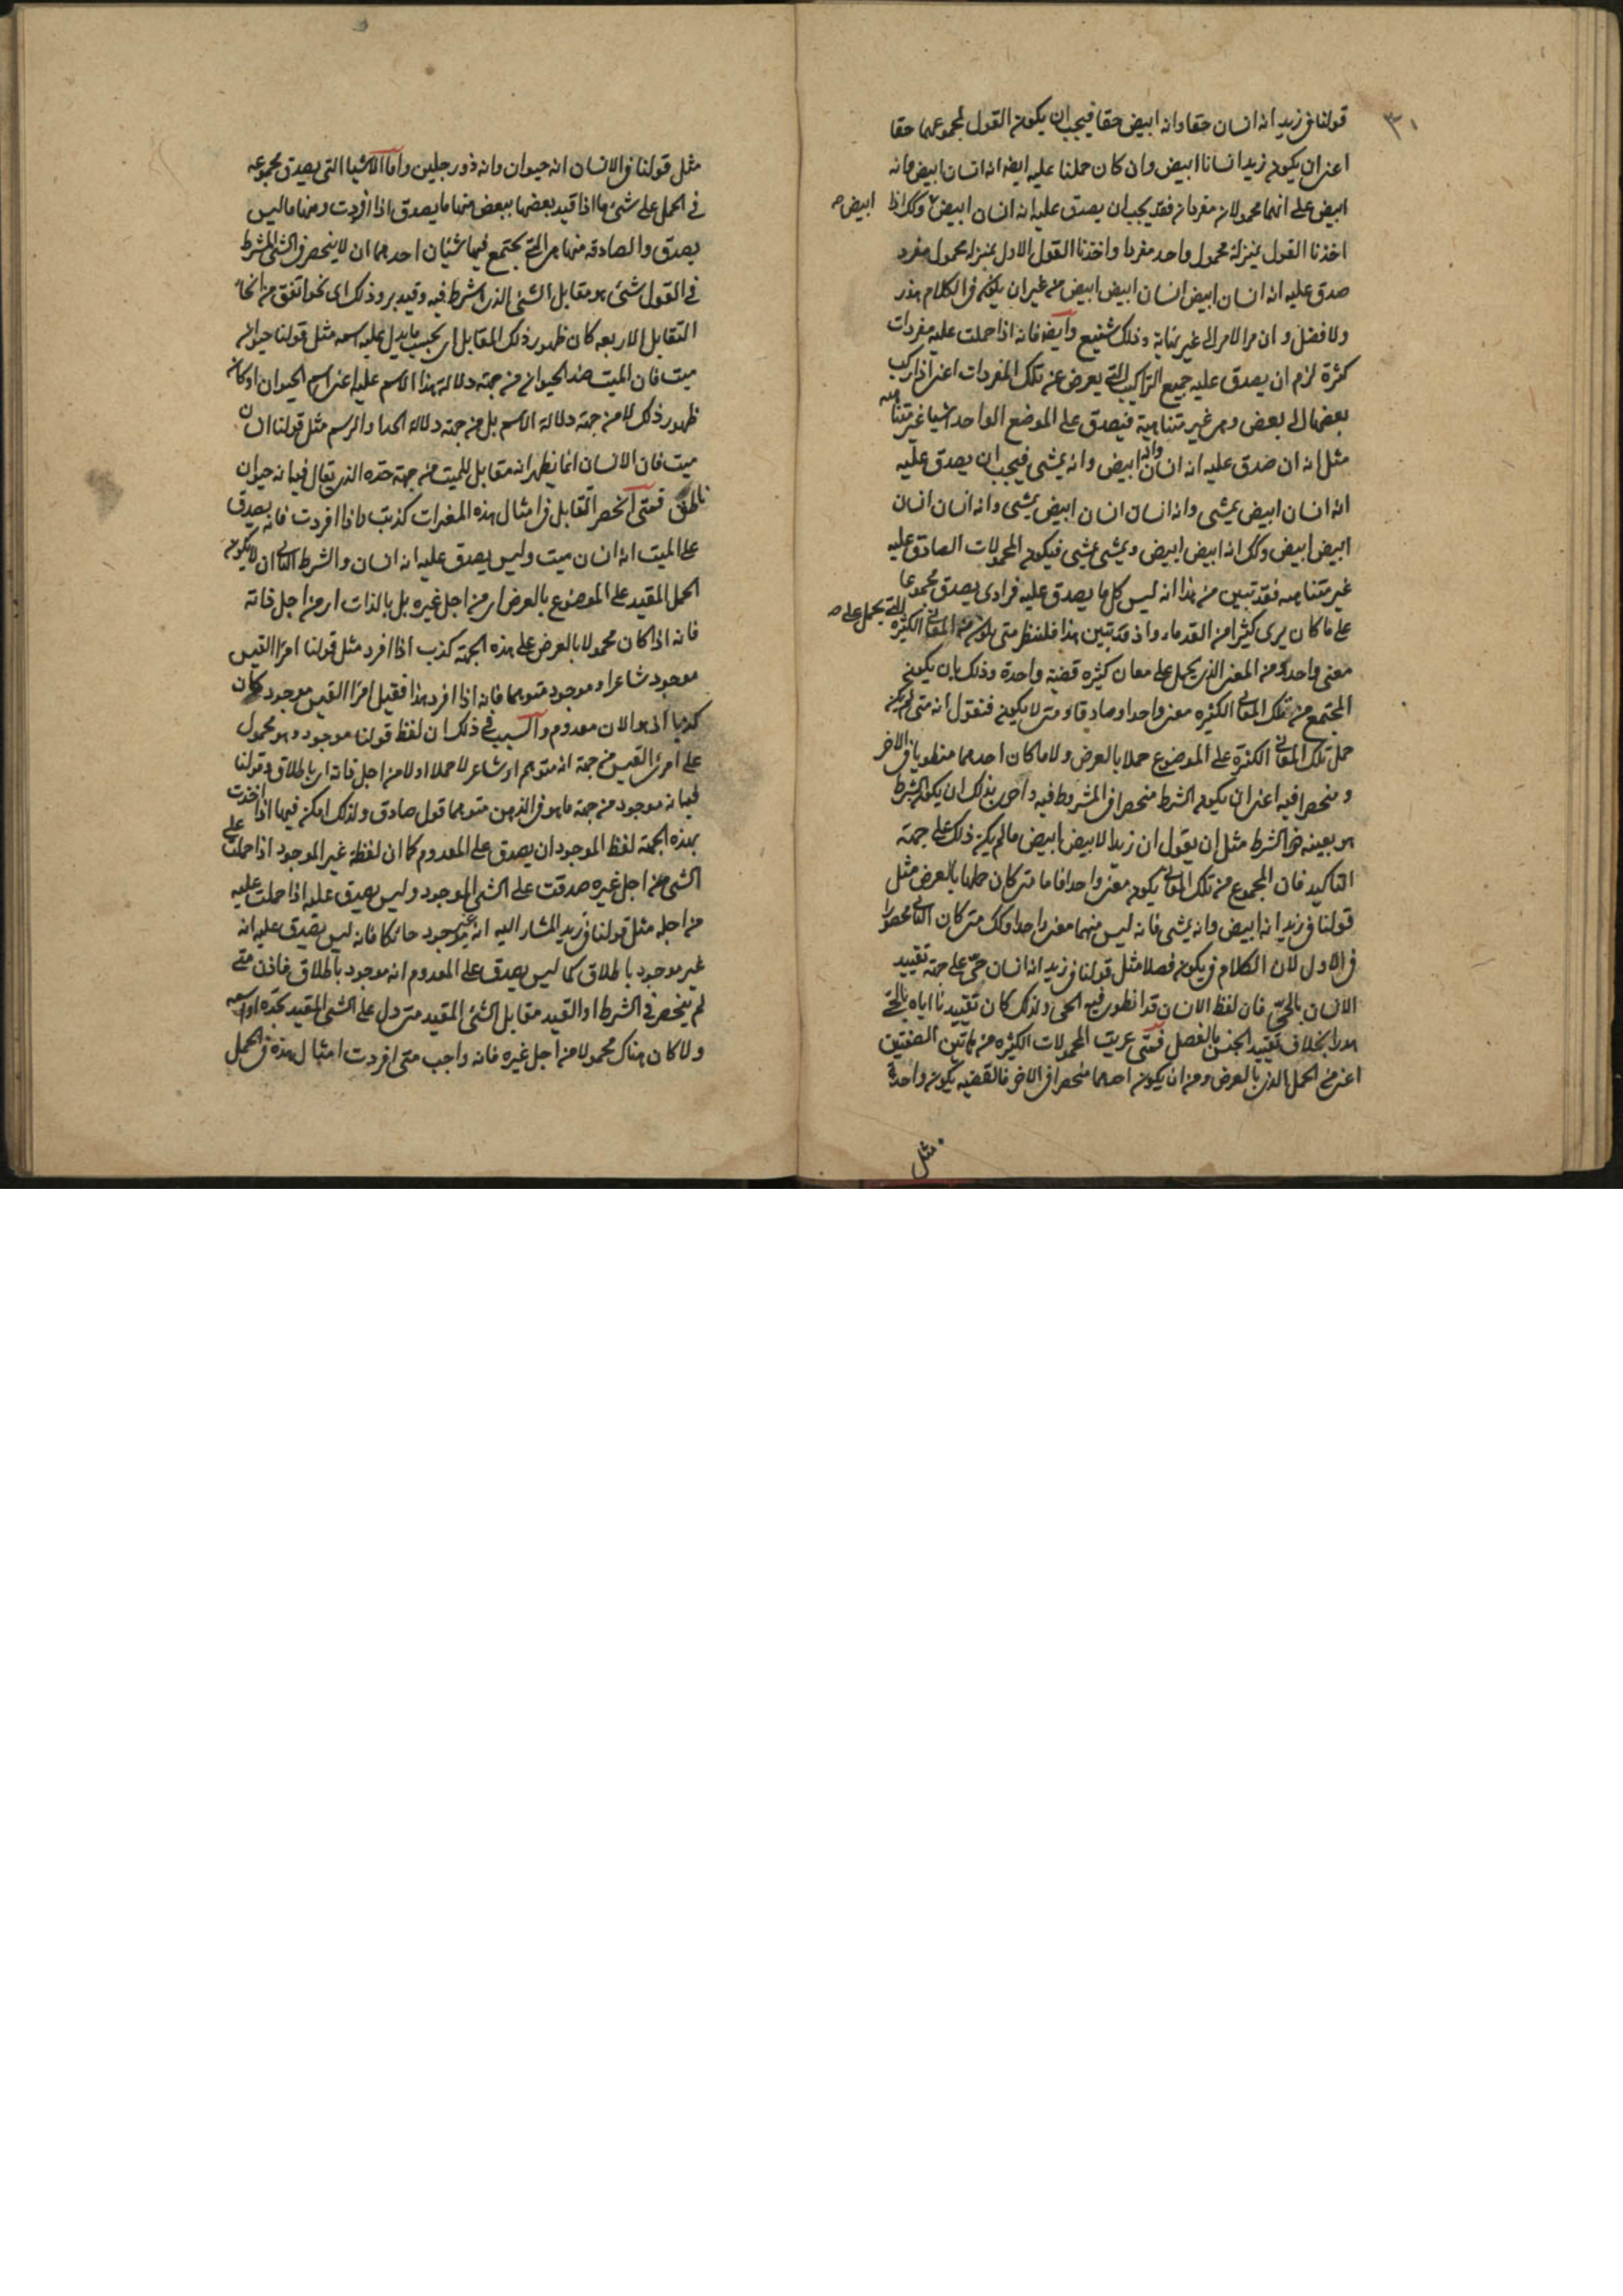 ٣١
قولنا في زيد انه انسان حقا وانه ابيض حقا فيجب ان يكون القول لمجموعهما حقا
اعنى ان يكون زيد انسانا ابيض وان كان حملنا عليه ايضا انه انسان ابيض وانه
ابيض على انهما محمولان مفردان فقد يجب ان يصدق عليه انه انسان ابيض وكك اذا
ابيض صح
اخذنا القول بمنزلة محمول واحد مفردا واخذنا القول الاول بمنزلة محمول مفرد
صدق عليه انه انسان ابيض انسان ابيض ابيض من غير ان يكون في الكلام هذر
ولا فضل وان مر الامر الى غير نهاية وذلك شنيع وايضا فانه اذا حملت عليه مفردات
كثرة لزم ان يصدق عليه جميع التراكيب التي يعرض عن تلك المفردات اعنى اذا ركب
بعضها الى بعض وهى غير متناهية فيصدق على الموضع الواحد اشيا غير متناهيه
مثل انه ان صدق عليه انه انسان وانه ابيض وانه يمشى فيجب ان يصدق عليه
انه انسان ابيض يمشى وانه انسان انسان ابيض يمشى وانه انسان انسان
ابيض ابيض وكك انه ابيض ابيض ويمشى يمشى فيكون المحمولات الصادق عليه
غير متناهيه فقد تبين من هذا انه ليس كل ما يصدق عليه فرادى يصدق مجموعا
على ما كان يرى كثيرا من القدماء واذ قد تبين هذا فلننظر متى يكون من المعانى الكثيره
التي يحمل على صح
معنى واحد ومن المعنى الذى يحمل على معان كثيره قضية واحدة وذلك بان يكون
المجتمع من تلك المعانى الكثيره معنى واحدا وصادقا ومتى لا يكون فنقول انه متى لم يكن
حمل تلك المعانى الكثرة على الموضوع حملا بالعرض ولا ما كان احدهما منطويا في الاخر
ومنحصرا فيه اعنى ان يكون الشرط منحصرا في المشروط فيه واحرى بذلك ان يكون الشرط
هو بعينه هو الشرط مثل ان يقول ان زيدا لابيض ابيض ما لم يكن ذلك على جهة
التاكيد فان المجموع من تلك المعانى يكون معنى واحدا فاما متى كان حملها بالعرض مثل
قولنا في زيد انه ابيض وانه يمشى فانه ليس منهما معنى واحدا وكك متى كان الثانى محصورا
في الاول لان الكلام في يكون فصلا مثل قولنا في زيد انه انسان حى على جهة تقييد
الانسان بالحى فان لفظ الانسان قد انطوى فيه الحى ولذلك كان تقييدنا اياه بالحى
هدرا بخلاف تقييد الجنس بالفصل فمتى عريت المحمولات الكثيره من هاتين الصفتين
اعنى من الحمل الذى بالعرض ومن ان يكون احدهما منحصرا في الاخر فالقضيه يكون واحدة
مثل
مثل قولنا في الانسان انه حيوان وانه ذو رجلين واما الاشيا التى يصدق مجموعه
في الحمل على شئ ما اذا قيد بعضها ببعض منها ما يصدق اذا افردت ومنها ما ليس
يصدق والصادقة منها هى التي يجتمع فيها شيئان احدهما ان لا ينحصر في الشئ المشترط
في القول شئ هو مقابل الشئ الذى اشترط فيه وقيد به وذلك اى نحو اتفق من انحاء
التقابل الاربعه كان ظهور ذلك المقابل اى بحسب ما يدل عليه اسمه مثل قولنا حيوان
ميت فان الميت ضد الحيوان من جهة دلالة هذا الاسم عليه اعنى اسم الحيوان او كان
ظهور ذلك لا من جهة دلالة الاسم بل من جهة دلالة الحد او الرسم مثل قولنا انسان
ميت فان الانسان انما يظهر انه مقابل للميت من جهة حده الذى يقال فيه انه حيوان
ناطق فمتى انحصر التقابل في امثال هذه المفردات كذبت واذا افردت فانه يصدق
على الميت انه انسان ميت وليس يصدق عليه انه انسان والشرط الثانى ان لا يكون
الحمل المقيد على الموضوع بالعرض اى من اجل غيره بل بالذات اى من اجل ذاته
فانه اذا كان محمولا بالعرض على هذه الجهة كذب اذا افرد مثل قولنا امرؤا القيس
موجود شاعرا وموجود متوهما فانه اذا افرد هذا فقيل امرؤا القيس موجود كان
كذبا اذ هو الان معدوم والسبب في ذلك ان لفظ قولنا موجود وهو محمول
على امرئ القيس من جهة انه متوهم او شاعر لا حملا اولا من اجل ذاته اى باطلاق وقولنا
فيه انه موجود من جهة ما هو في الذهن متوهما قول صادق ولذلك امكن فيها اذا اخذت
بهذه الجهة لفظ الموجود ان يصدق على المعدوم كما ان لفظة غير الموجود اذا حملت على
الشئ من اجل غيره صدقت على الشئ الموجود وليس يصدق عليه اذا حملت عليه
من اجله مثل قولنا في زيد المشار اليه انه غير موجود حائكا فانه ليس يصدق عليه انه
غير موجود باطلاق كما ليس يصدق على المعدوم انه موجود باطلاق فاذن متى
لم ينحصر في الشرط او القيد مقابل الشئ المقيد متى دل على الشئ المقيد بحده او اسمه
ولا كان هناك محمولا من اجل غيره فانه واجب متى افردت امثال هذه في الحمل